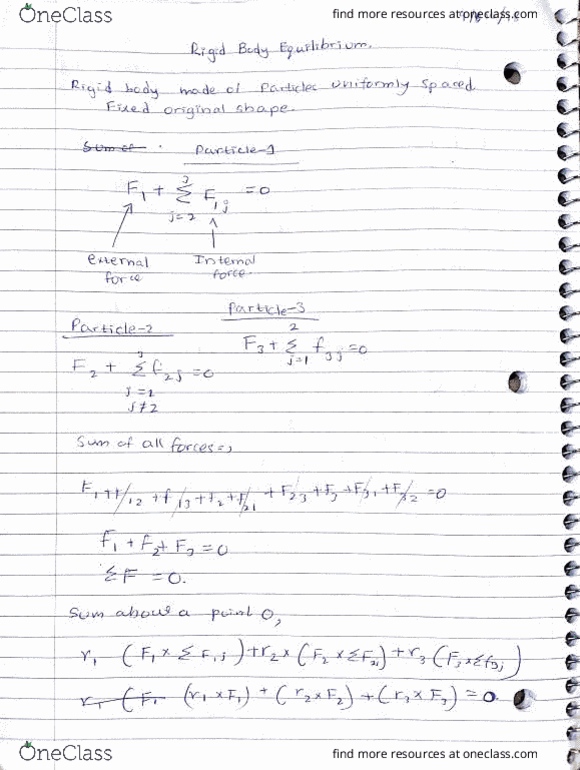 OneClass find more resources at oneclass.com
Rigid Body Equilibrium.
Rigid body made of Particles uniformly spaced.
Fixed original shape.
Sum of Particle-1
F₁ + Σ F₁ⱼ = 0
3
j=2
external Internal
force force.
Particle-3
Particle-2
F₃ + Σ f₃ⱼ = 0
2
j=1
F₂ + Σ f₂ⱼ = 0
3
j=1
j≠2
Sum of all forces =>
F₁ + F₁₂ + f₁₃ + F₂ + F₂₁ + F₂₃ + F₃ + F₃₁ + F₃₂ = 0
F₁ + F₂ + F₃ = 0
ΣF = 0.
Sum about a point O,
r₁ (F₁ × Σ F₁ⱼ) + r₂ × (F₂ × ΣF₂ⱼ) + r₃ (F₃ × Σf₃ⱼ)
r₁ (F₁ (r₁ × F₁) + (r₂ × F₂) + (r₃ × F₃) = 0
OneClass find more resources at oneclass.com